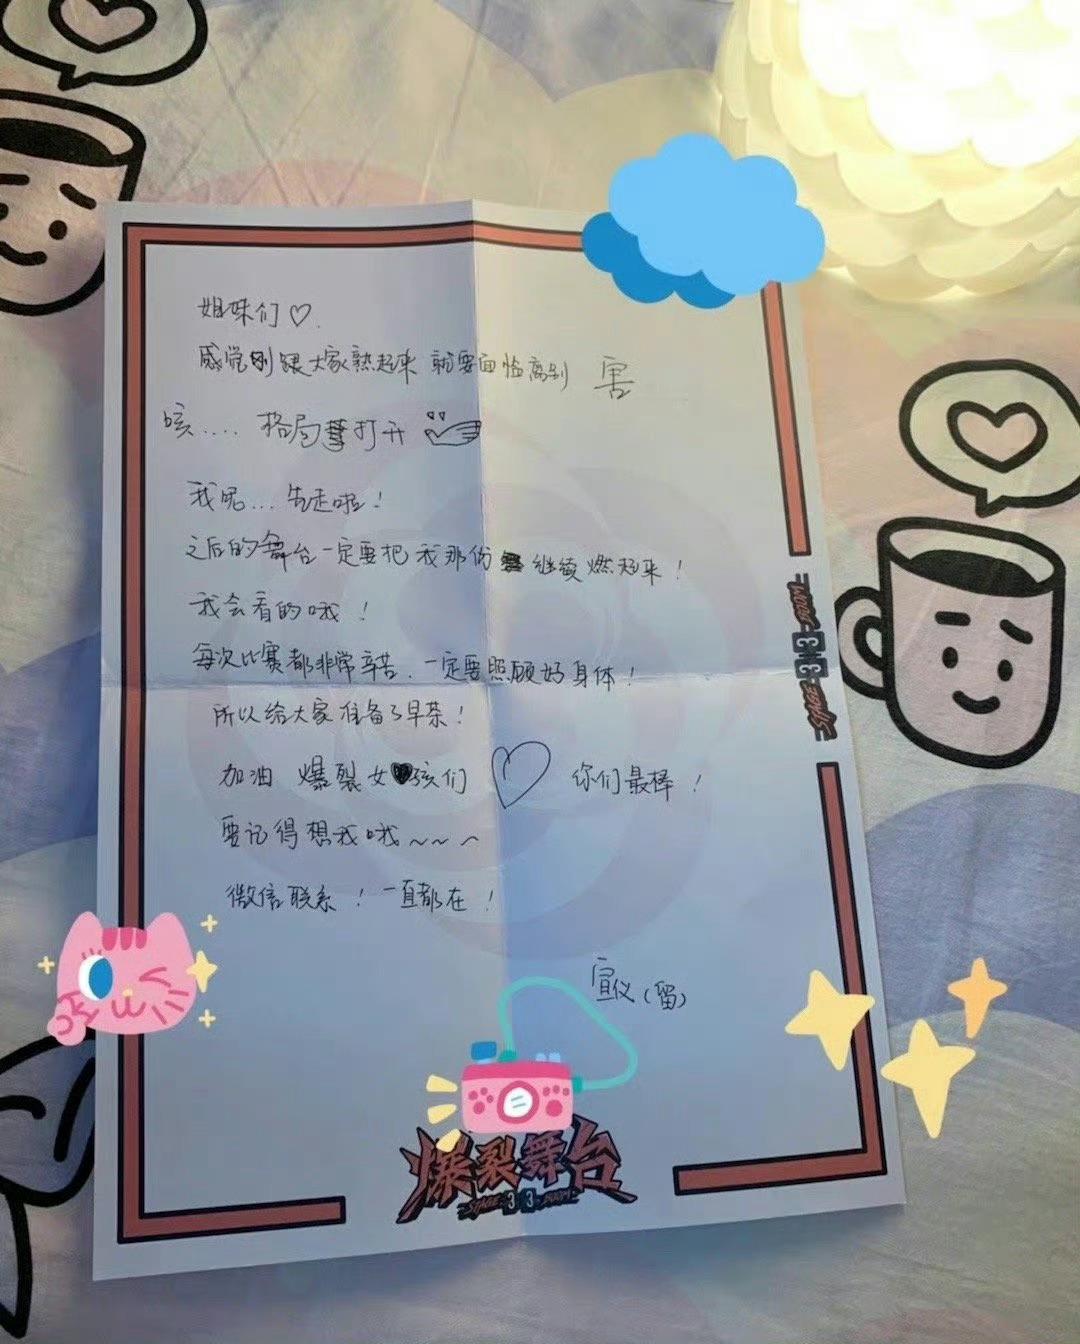 姐妹们♡.
感觉刚跟大家熟起来 就要面临离别 害
咳.... 格局打开
我呢...先走啦！
之后的舞台一定要把我那份 继续燃起来！
我会看的哦！
每次比赛都非常辛苦.一定要照顾好身体！
所以给大家准备了早茶！
加油 爆裂女孩们 ♡ 你们最棒！
要记得想我哦~~~
微信联系！一直都在！
宣仪(留)
STAGE 33 BOOM
爆裂舞台
STAGE 33 BOOM